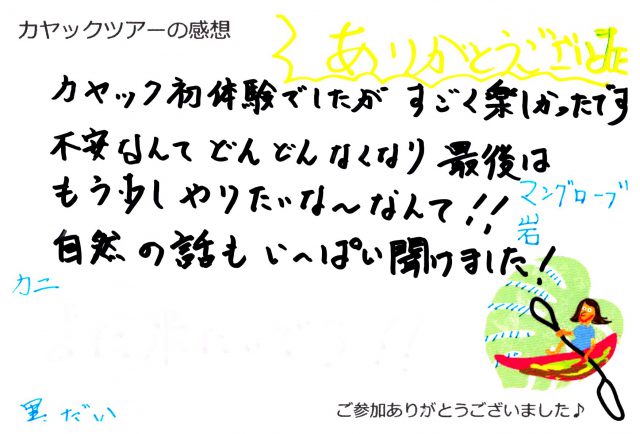 カヤックツアーの感想
ありがとうございました
カヤック初体験でしたが すごく楽しかったです
不安なんて どんどんなくなり 最後は
もう少し やりたいな〜なんて!!
マングローブ
岩
自然の話も いっぱい聞けました!
カニ
黒だい
ご参加ありがとうございました♪